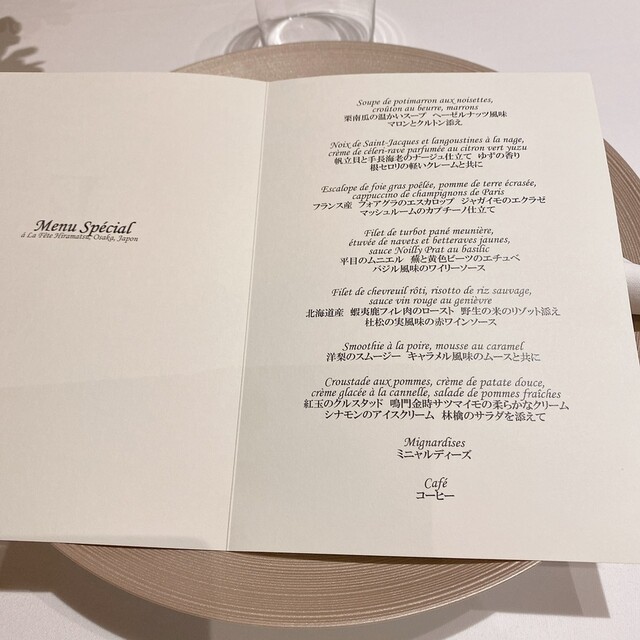 Menu Spécial
à La Fête Hiramatsu, Osaka, Japon
Soupe de potimarron aux noisettes,
croûton au beurre, marrons
栗南瓜の温かいスープ ヘーゼルナッツ風味
マロンとクルトン添え
Noix de Saint-Jacques et langoustines à la nage,
crème de céleri-rave parfumée au citron vert yuzu
帆立貝と手長海老のナージュ仕立て ゆずの香り
根セロリの軽いクレームと共に
Escalope de foie gras poêlée, pomme de terre écrasée,
cappuccino de champignons de Paris
フランス産 フォアグラのエスカロップ ジャガイモのエクラゼ
マッシュルームのカプチーノ仕立て
Filet de turbot pané meunière,
étuvée de navets et betteraves jaunes,
sauce Noilly Prat au basilic
平目のムニエル 蕪と黄色ビーツのエチュベ
バジル風味のワイリーソース
Filet de chevreuil rôti, risotto de riz sauvage,
sauce vin rouge au genièvre
北海道産 蝦夷鹿フィレ肉のロースト 野生の米のリゾット添え
杜松の実風味の赤ワインソース
Smoothie à la poire, mousse au caramel
洋梨のスムージー キャラメル風味のムースと共に
Croustade aux pommes, crème de patate douce,
crème glacée à la cannelle, salade de pommes fraîches
紅玉のクルスタッド 鳴門金時サツマイモの柔らかなクリーム
シナモンのアイスクリーム 林檎のサラダを添えて
Mignardises
ミニャルディーズ
Café
コーヒー